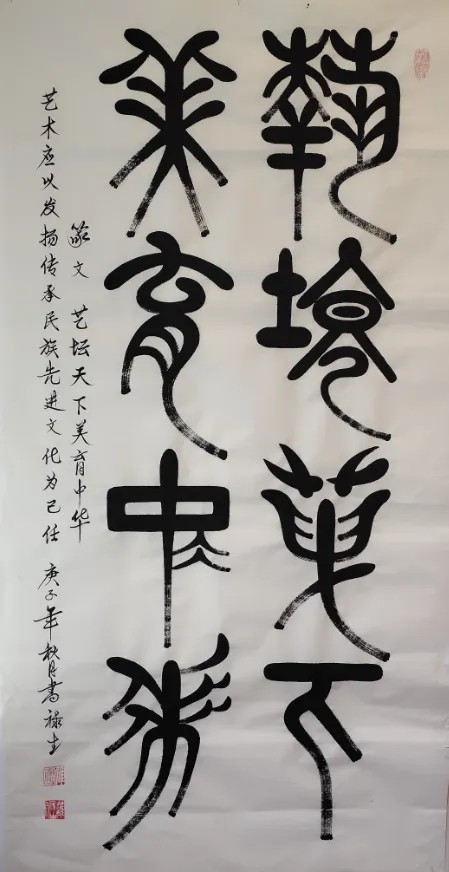 艺坛天下
美育中华
篆文 艺坛天下美育中华
艺术应以发扬传承民族先进文化为己任 庚子年秋月书禄生